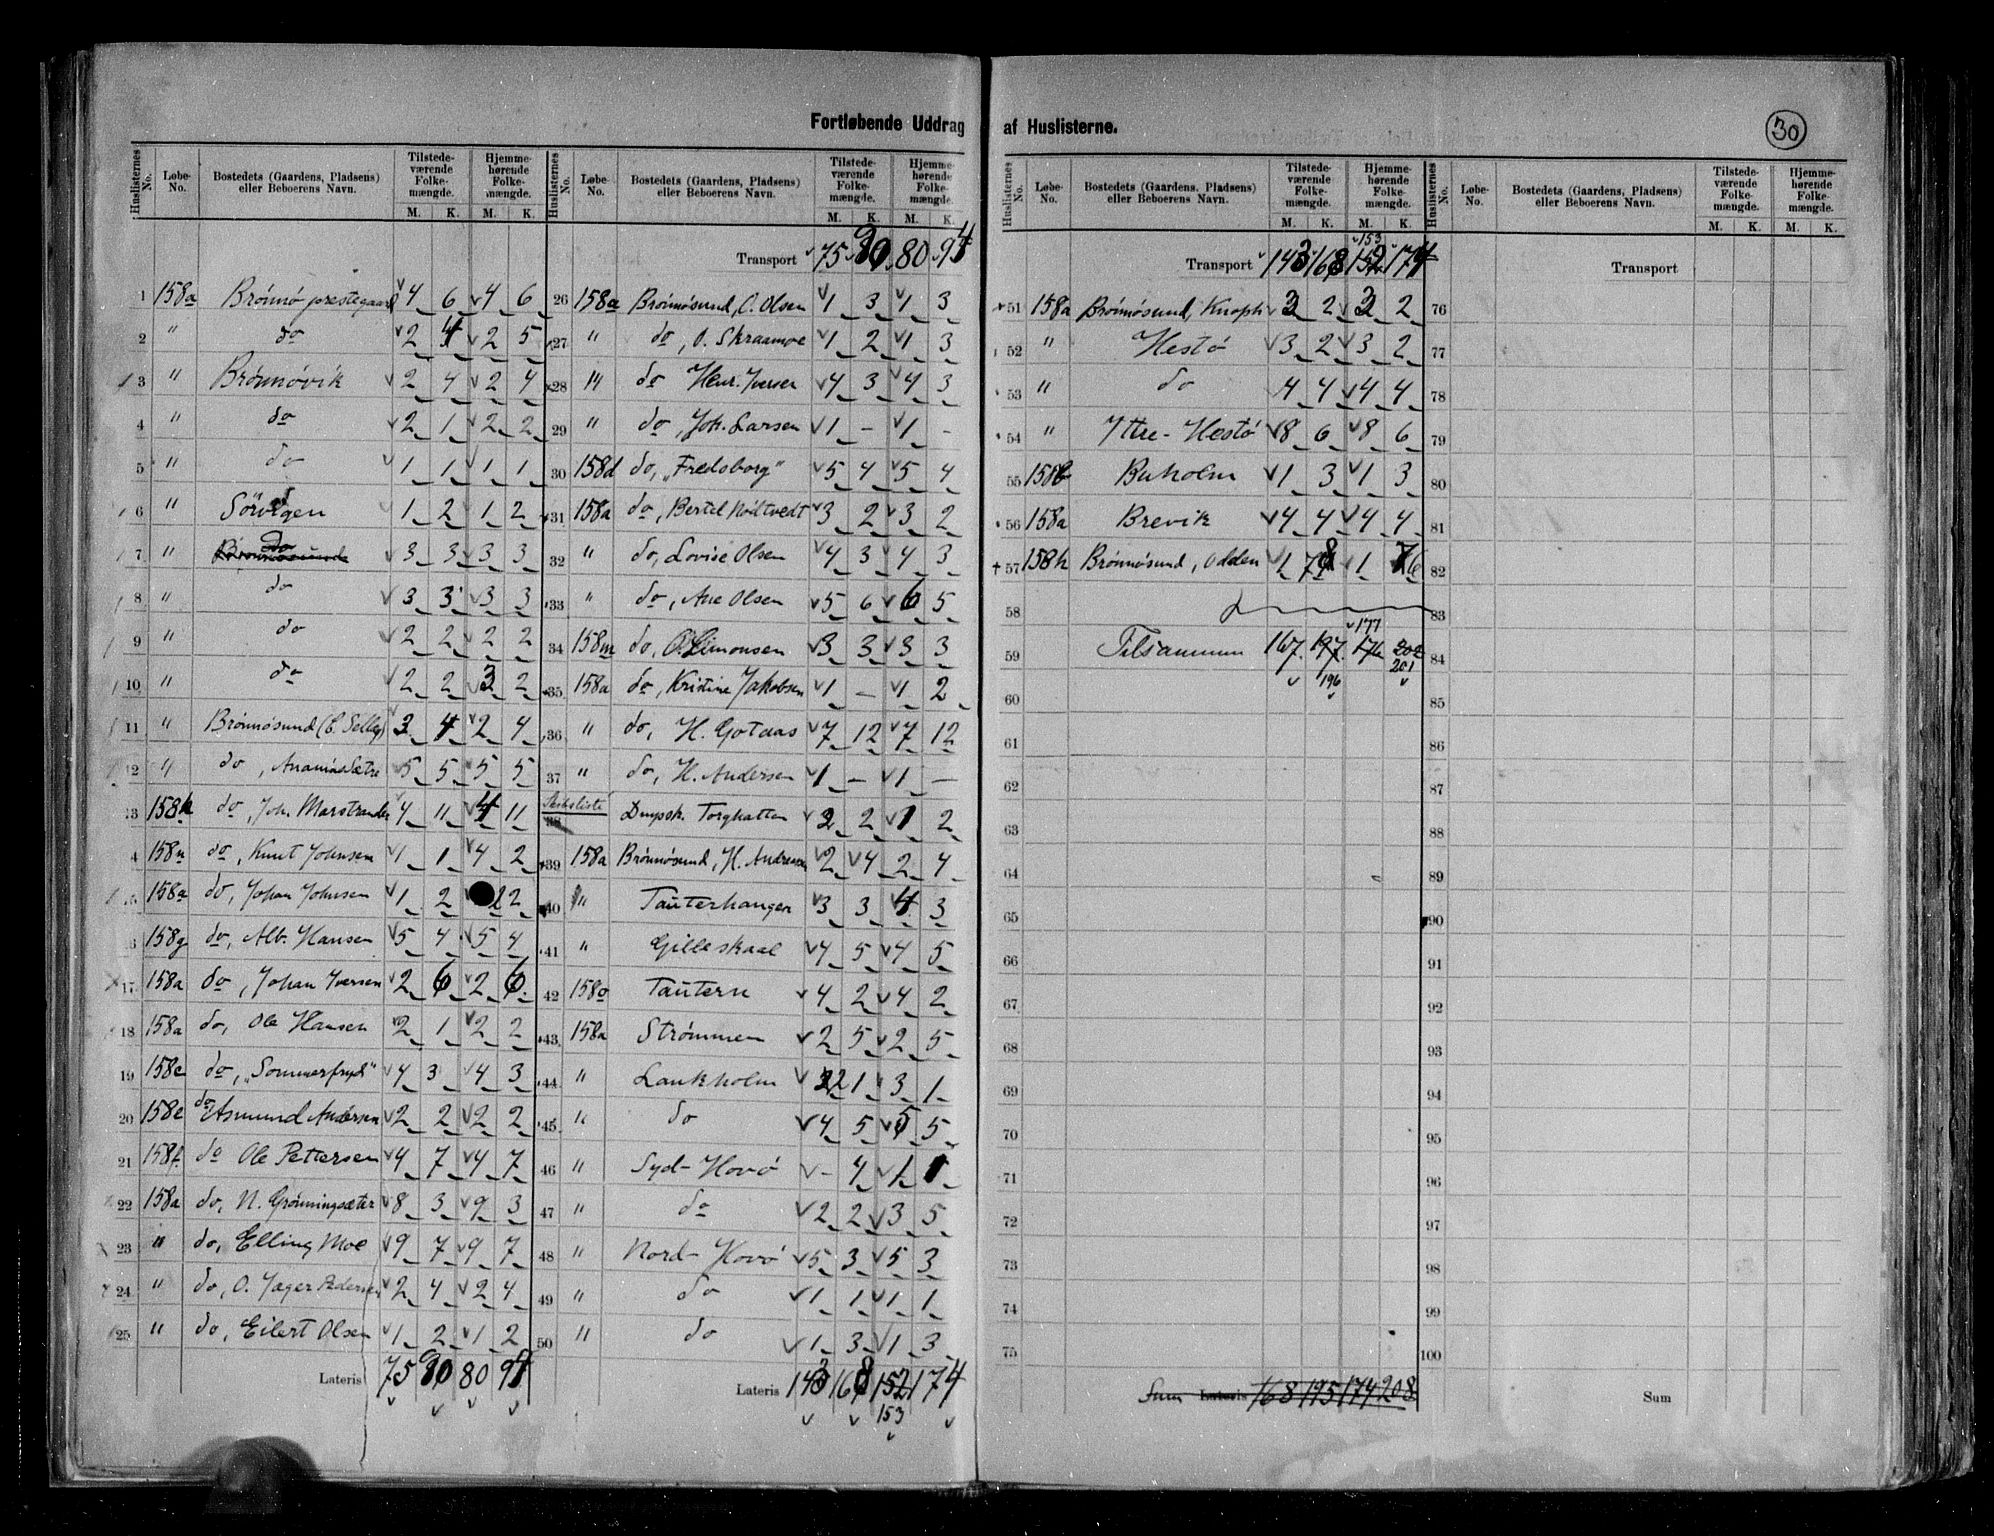 Fortløbende Uddrag af Huslisterne.
30
Huslisternes No. Løbe-No. Bostedets (Gaardens, Pladsens) eller Beboerens Navn. Tilstedeværende Folkemængde. M. K. Hjemmehørende Folkemængde. M. K.
1 158a Brønnø prestegaard 4 6 4 6
2 " do 2 4 2 5
3 " Brønnøvik 2 4 2 4
4 " do 2 1 2 2
5 " do 1 1 1 1
6 " Sørvigen 1 2 1 2
7 " do 3 3 3 3
8 " do 3 3 3 3
9 " do 2 2 2 2
10 " do 2 2 3 2
11 " Brønnøsund 3 4 2 4
12 " do 5 5 5 5
13 158k do, Joh. Marstrander 4 11 4 11
14 158n do, Knut Johnsen 1 1 4 2
15 158a do, Johan Johnsen 1 2 2 2
16 158g do, Alb. Hansen 5 4 5 4
17 158a do, Johan Iversen 2 6 2 6
18 158a do, Ole Hansen 2 1 2 2
19 158c do, „Sommerfryd" 4 3 4 3
20 158e do Asmund Andersen 2 2 2 2
21 158f do Ole Pettersen 4 7 4 7
22 158a do, N. Grønningsæter 8 3 9 3
23 " do, Elling Moe 9 7 9 7
24 " do, O. Jæger Pedersen 2 4 2 4
25 " do, Eilert Olsen 1 2 1 2
Lateris 75 90 80 94
Huslisternes No. Løbe-No. Bostedets (Gaardens, Pladsens) eller Beboerens Navn. Tilstedeværende Folkemængde. M. K. Hjemmehørende Folkemængde. M. K.
Transport 75 90 80 94
26 158a Brønnøsund, O. Olsen 1 3 1 3
27 " do, O. Skraamoe 1 2 1 3
28 " do Henr. Iversen 4 3 4 3
29 " do, Joh. Larsen 1 - 1 -
30 158d do, „Fredsborg" 5 4 5 4
31 158a do, Bertel 3 2 3 2
32 " do, Lovise Olsen 4 3 4 3
33 " do, Ane Olsen 5 6 6 5
34 158m do, O. Simonsen 3 3 3 3
35 158a do, Kristine Jakobsen 1 - 1 2
36 " do, H. Gotaas 7 12 7 12
37 " do, H. Andersen 1 - 1 -
38 Skibsliste Dmpsk. Torghatten 2 2 1 2
39 158a Brønnøsund, H. Andresen 2 4 2 4
40 " Tauterhangen 3 3 4 3
41 " Gilleskaal 4 5 4 5
42 158o Tautern 4 2 4 2
43 158a Strømmen 2 5 2 5
44 " Lankholm 2 1 3 1
45 " do 4 5 5 5
46 " Syd-Hovø - 4 1 1
47 " do 2 2 3 5
48 " Nord-Hovø 5 3 5 3
49 " do 1 1 1 1
50 " do 1 3 1 3
Lateris 143 168 152 174
153
Huslisternes No. Løbe-No. Bostedets (Gaardens, Pladsens) eller Beboerens Navn. Tilstedeværende Folkemængde. M. K. Hjemmehørende Folkemængde. M. K.
153
Transport 143 168 152 174
51 158a Brønnøsund, 3 2 3 2
52 " Hestø 3 2 3 2
53 " do 4 4 4 4
54 " Yttre-Hestø 8 6 8 6
55 158b Buholm 1 3 1 3
56 158a Brevik 4 4 4 4
57 158h Brønnøsund, Odden 1 7 1 6
58
177
59 Tilsammen 167 197 176 202
196 201
60
61
62
63
64
65
66
67
68
69
70
71
72
73
74
75
Sum Lateris 168 195 174 208
Huslisternes No. Løbe-No. Bostedets (Gaardens, Pladsens) eller Beboerens Navn. Tilstedeværende Folkemængde. M. K. Hjemmehørende Folkemængde. M. K.
Transport
76
77
78
79
80
81
82
83
84
85
86
87
88
89
90
91
92
93
94
95
96
97
98
99
100
Sum